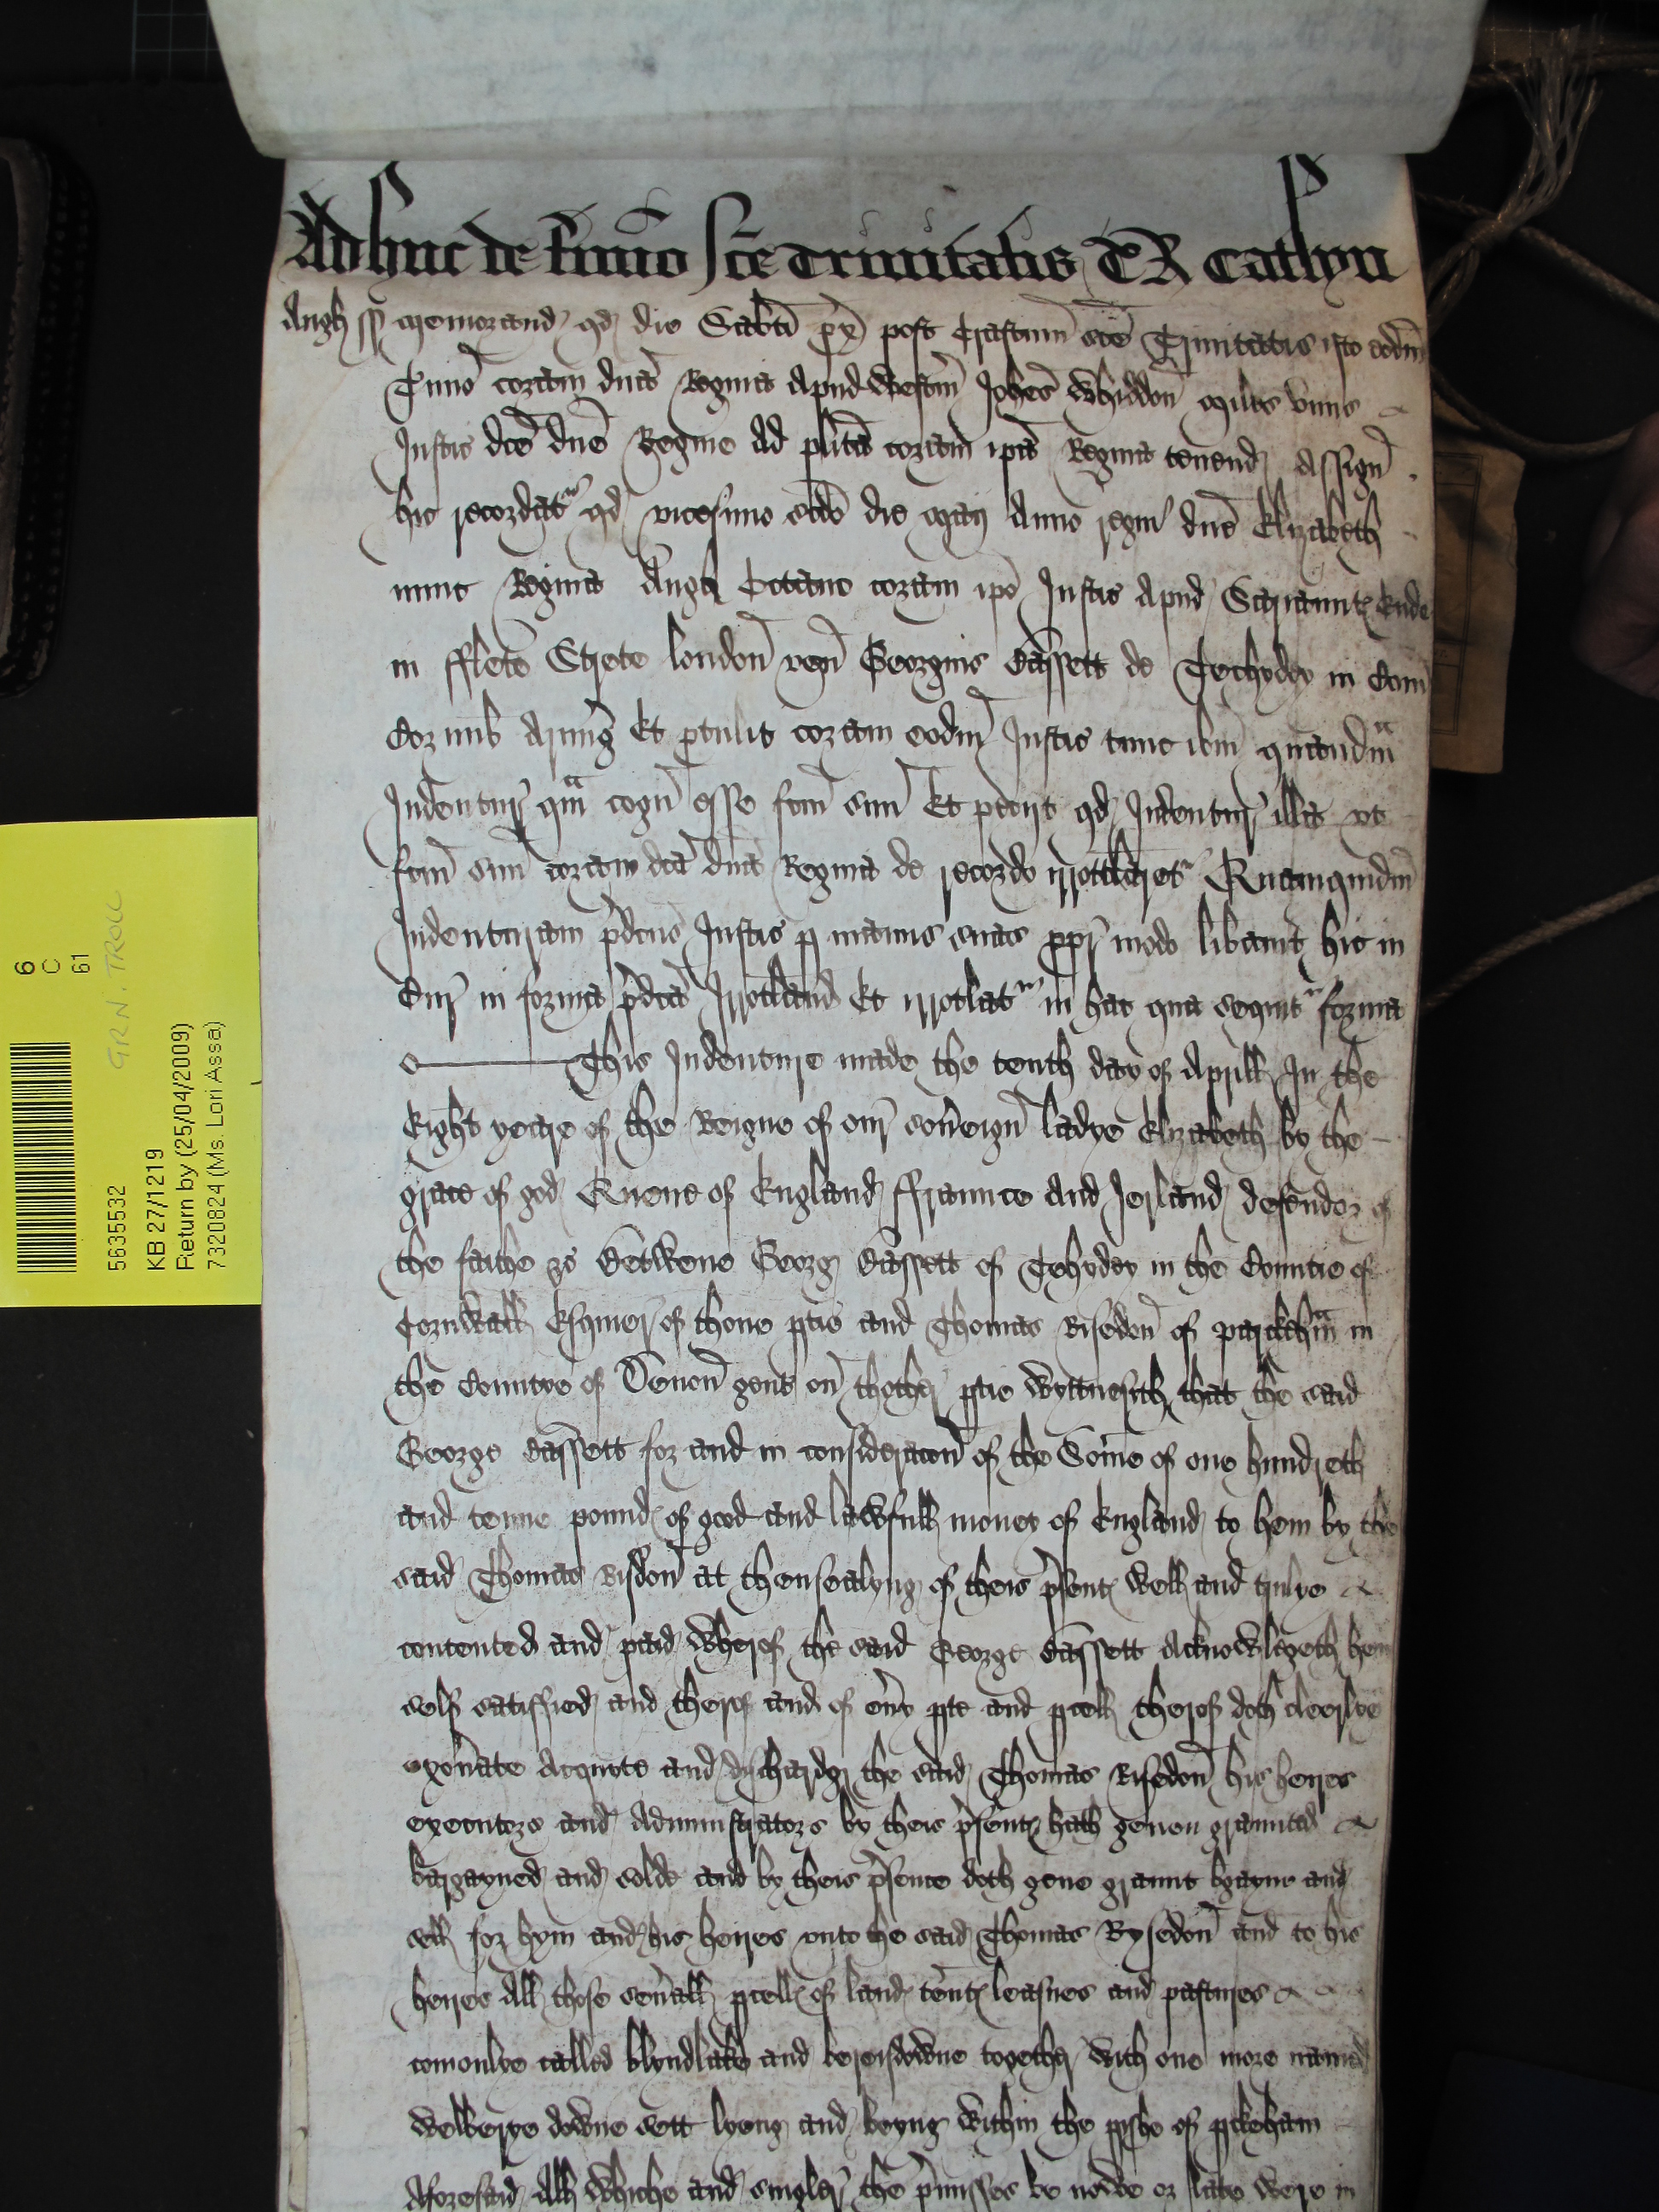 Adhuc de Termio Sce Trinitatis E R Catlyn
Angl ss Memorand qd die Sabti px post Crastinm sce Trinitatis isto eodm
Tmio coram dna Regina apud Westm Johes Whiddon miles unus
Justic dce dne Regine ad plita coram ipa Regina tenend assign
hic recordatr qd vicesimo scdo die Maij Anno regni dne Elizabeth
nunc Regina Angl Octavo coram ipo Justic apud Sariaunts Ende
in fflete Strete london ven Georgius Bassett de Techydey in Com
Cornub Armig Et ptulit coram eodm Justic tunc ibm quandm
Indentur qm cogn esse fcm suu Et petijt qd Indentur illa vt
fcm suu coram dca dna Regina de recordo irrotlaretr Quamquidm
Indenturam pdcus Justic p manus suas ppr modo libavit hic in
Cur in forma pdca Irrotland Et irrotlatr in hac qua sequitr forma
This Indenture made the tenth day of Aprill In the
Eight yeare of the Reigne of our sovreign ladye Elizabeth by the
grace of god Quene of England ffraunce and Ierland defendor of
the faithe &c Betwene Georg Bassett of Tehydey in the Countie of
Cornwall Esquier of thone ptie and Thomas Risedon of parckhm in
the Countye of Devon gent on thother ptie wyttnesith that the said
George Bassett for and in consideracon of the Some of one hundreth
and tenne pound of good and lawfull money of England to hem by the
said Thomas Risdon at thensealyng of theis psents well and trulye
contented and paid Wherof the said George Bassett Acknowlegeth hem
self satisffied and therof and of evry pte and pcell therof doth cleerlye
exonrate Acquite and dischardg the said Thomas Risedon his heires
executors and Administrators by theis psents hath geven graunted
bargayned and solde and by theis psence doth geve graunt bgayne and
sell for hym and his heires unto the said Thomas Rysedon and to his
heires All those sevrall pcells of land tents leasues and pastures
comonlye called blyndlake and beresdowne together with one more named
Welberye downe sett lyeng and beyng within the pishe of pkeham
Aforesaid All Whiche and singler the pmisses be nowe or late were in
6
C
61
GRN. TROLL
5635532
KB 27/1219
Return by (25/04/2009)
7320824 (Ms. Lori Assa)